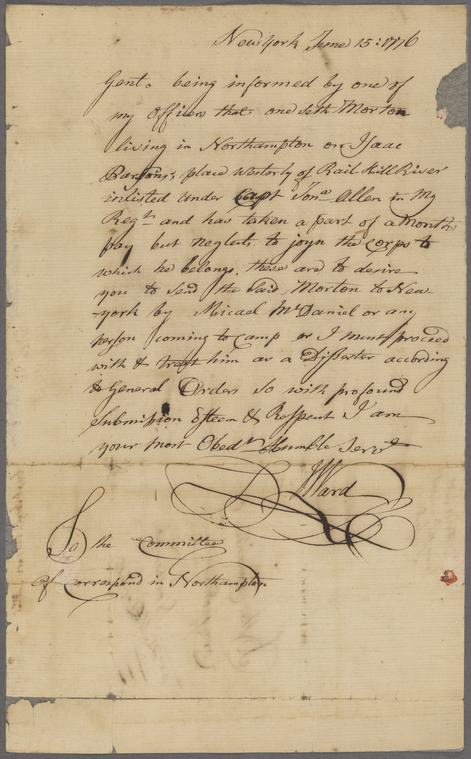 New York June 15: 1776
Gent.s being informed by one of
my Officers that one Seth Morton
living in Northampton on Isaac
Parsons's place Westerly of Rail Hill River
inlisted under Capt Jon.a Allen in My
Reg.t and has taken a part of a Months
pay but neglects to joyn the Corps to
which he belongs, these are to desire
you to Send the Said Morton to New
-york by Micael McDaniel or any
person coming to Camp or I must proceed
with & treat him as a Disserter according
to General Orders So with profound
Submission Esteem & Respect I am
your most Obed.t Humble Serv.t
JWard
To the Committee
of Correspond in Northampton